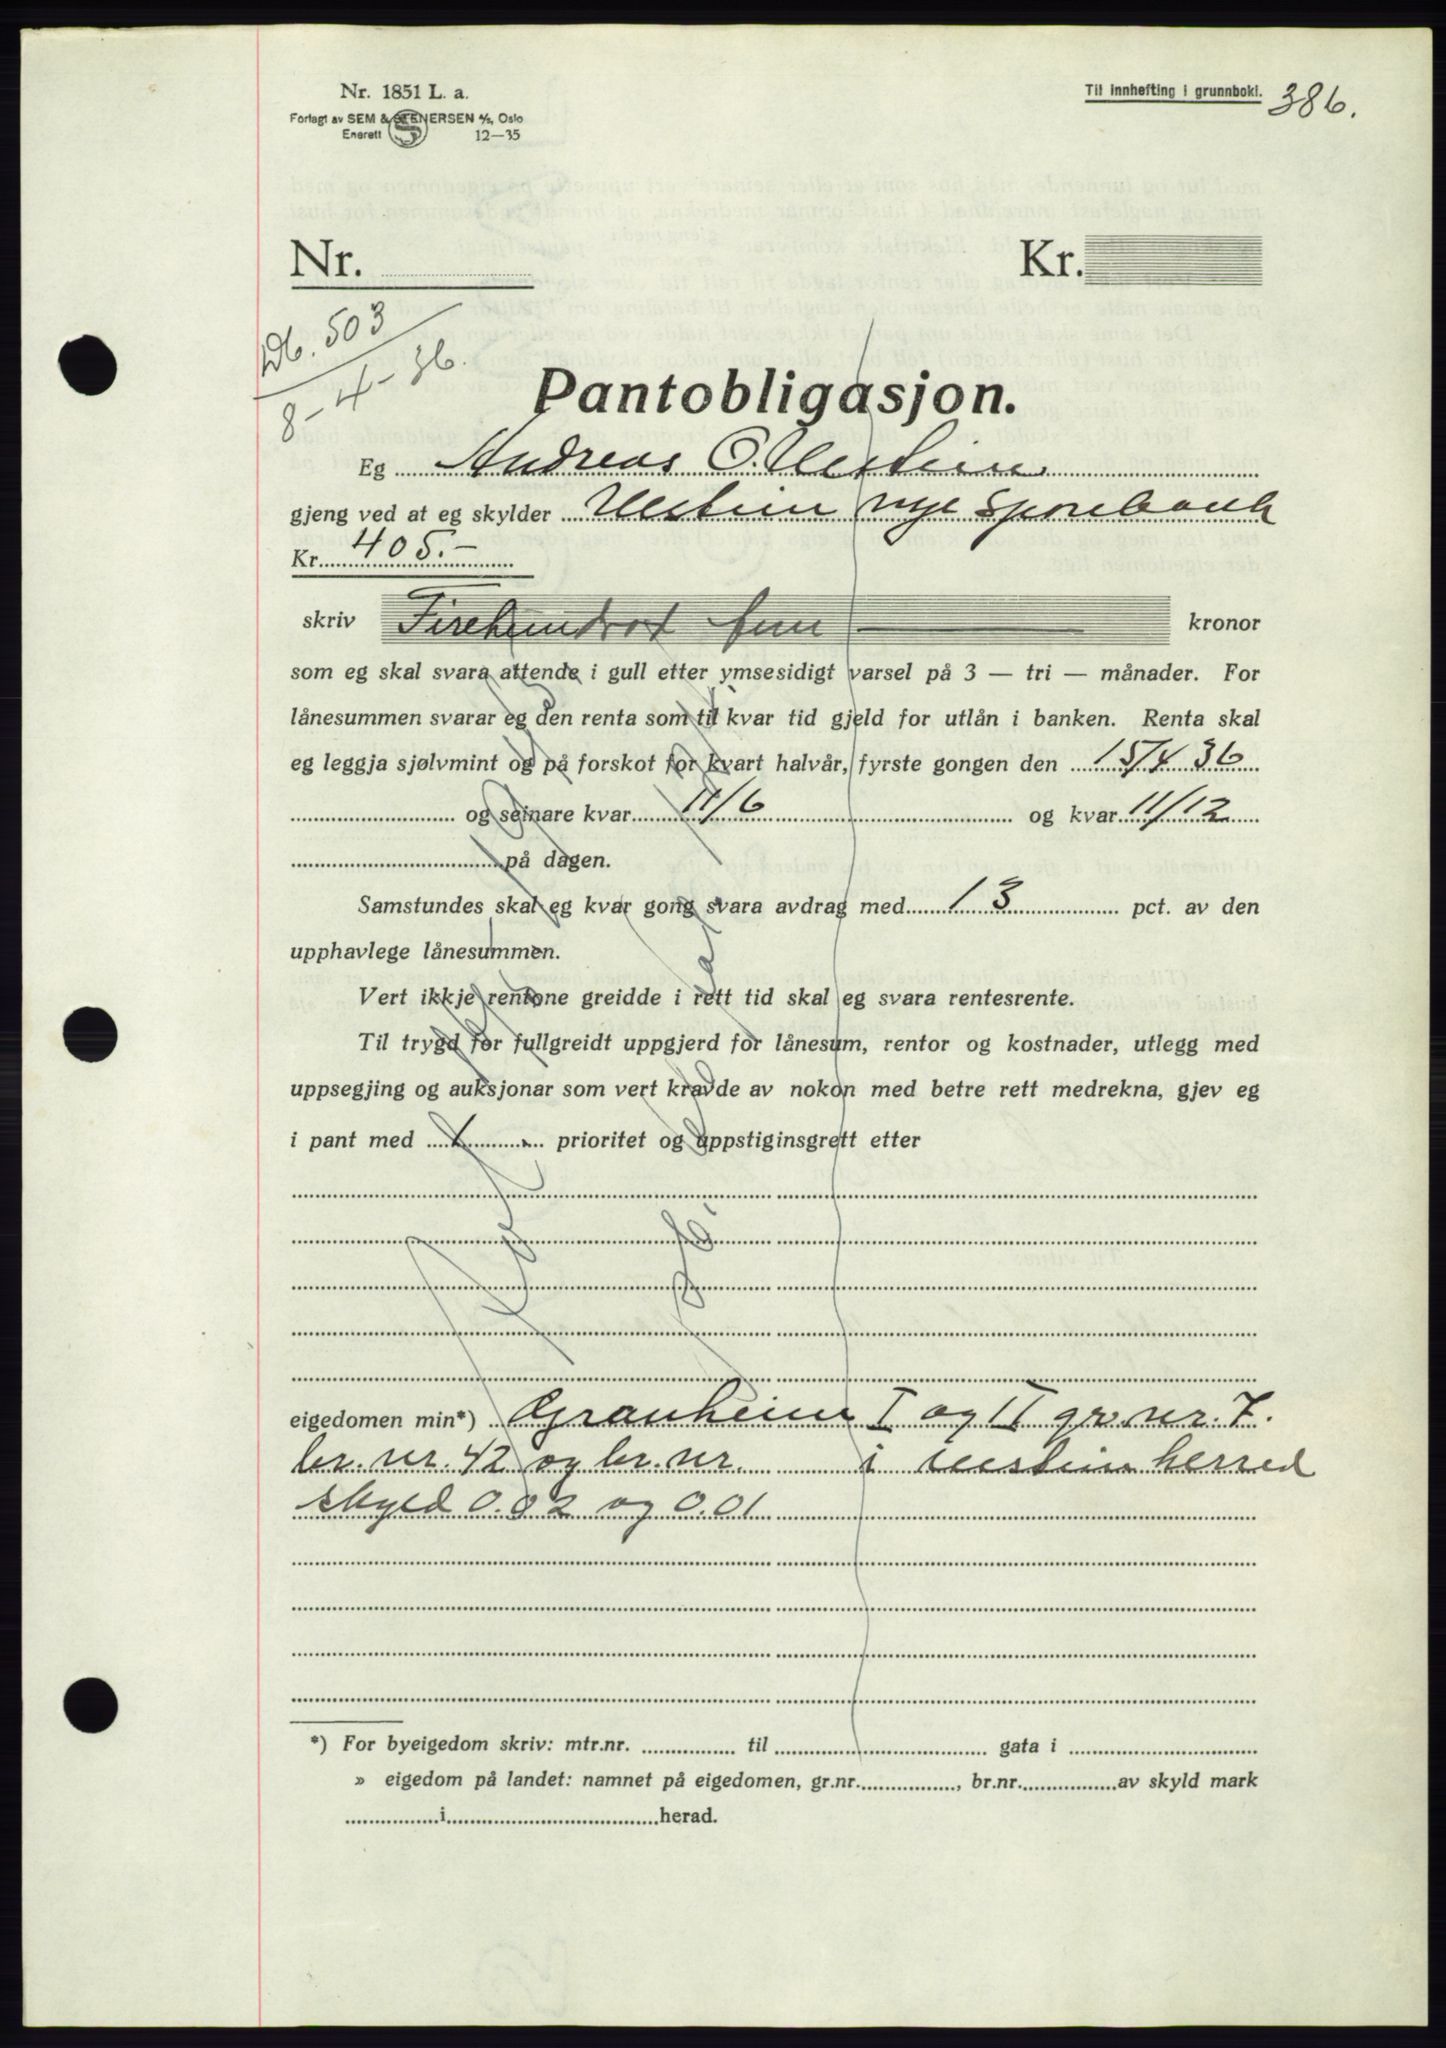 Nr. 1851 L. a.
Forlagt av SEM & STENERSEN A/S, Oslo
Enerett 12—35
Til innhefting i grunnboki. 386.
Nr. Kr.
Db. 503
8-4-36.
Pantobligasjon.
Eg Andreas O. Ulstein
gjeng ved at eg skylder Ulstein nye Sparebank
Kr. 405.-
skriv Firehundrat fem kronor
som eg skal svara attende i gull etter ymsesidigt varsel på 3 — tri — månader. For
lånesummen svarar eg den renta som til kvar tid gjeld for utlån i banken. Renta skal
eg leggja sjølvmint og på forskot for kvart halvår, fyrste gongen den 15/4 36
og seinare kvar 11/6 og kvar 11/12
på dagen.
Samstundes skal eg kvar gong svara avdrag med 13 pct. av den
upphavlege lånesummen.
Vert ikkje rentone greidde i rett tid skal eg svara rentesrente.
Til trygd for fullgreidt uppgjerd for lånesum, rentor og kostnader, utlegg med
uppsegjing og auksjonar som vert kravde av nokon med betre rett medrekna, gjev eg
i pant med 1. prioritet og uppstiginsgrett etter
eigedomen min*) Granheim I og II gr. nr. 7.
br. nr. 42 og br. nr. i Ulstein herred
skyld 0.02 og 0.01
*) For byeigedom skriv: mtr.nr. til gata i
» eigedom på landet: namnet på eigedomen, gr.nr. , br.nr. av skyld mark
i herad.